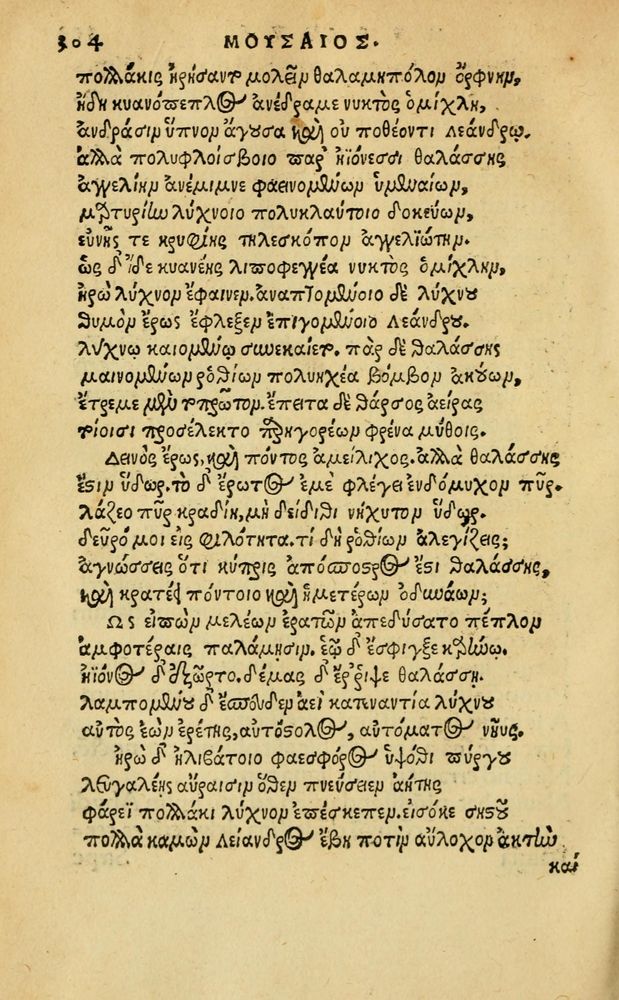 304 ΜΟΥΣΑΙΟΣ.
πολλάκις ἠρήσαντο μολεῖν θαλαμηπόλον ὄρφνην,
ἤδη κυανόπεπλος ἀνέδραμε νυκτὸς ὁμίχλη,
ἀνδράσιν ὕπνον ἄγουσα καὶ οὐ ποθέοντι Λεάνδρῳ.
ἀλλὰ πολυφλοίσβοιο παρ' ἠϊόνεσσι θαλάσσης
ἀγγελίην ἀνέμιμνε φαεινομένων ὑμεναίων,
μαρτυρίην λύχνοιο πολυκλαύτοιο δοκεύων,
εὐνῆς τε κρυφίης τηλεσκόπον ἀγγελιώτην.
ὡς δ' ἴδε κυανέης λιποφεγγέα νυκτὸς ὁμίχλην,
ἡρὼ λύχνον ἔφαινεν. ἀναπτομένοιο δὲ λύχνου
θυμὸν ἔρως ἔφλεξεν ἐπειγομένοιο Λεάνδρου.
λύχνῳ καιομένῳ συνεκαίετο. πὰρ δὲ θαλάσσης
μαινομένων ῥοθίων πολυηχέα βόμβον ἀκούων,
ἔτρεμε μὲν τὸ πρῶτον. ἔπειτα δὲ θάρσος ἀείρας
τοίοισι προσέλεκτο παρηγορέων φρένα μύθοις.
Δεινὸς ἔρως, καὶ πόντος ἀμείλιχος. ἀλλὰ θαλάσσης
ἐστὶν ὕδωρ. τὸ δ' ἔρωτος ἐμὲ φλέγει ἐνδόμυχον πῦρ.
λάζεο πῦρ κραδίη, μὴ δείδιθι νήχυτον ὕδωρ.
δεῦρό μοι εἰς φιλότητα. τί δὴ ῥοθίων ἀλεγίζεις;
ἀγνώσσεις ὅτι κύπρις ἀπόσπορος ἐστὶ θαλάσσης,
καὶ κρατέει πόντοιο καὶ ἡμετέρων ὀδυνάων;
Ως εἰπὼν μελέων ἐρατῶν ἀπεδύσατο πέπλον
ἀμφοτέραις παλάμησιν. ἑῷ δ' ἔσφιγξε καρήνῳ.
ἠϊόνος δ' ἐξῶρτο. δέμας δ' ἔρριψε θαλάσσῃ.
λαμπομένου δ' ἔσπευδεν ἀεὶ κατεναντία λύχνου
αὐτὸς ἐὼν ἐρέτης, αὐτόστολος, αὐτόματος νηῦς.
ἡρὼ δ' ἠλιβάτοιο φαεσφόρος ὑψόθι πύργου
λευγαλέης αὔραισιν ὅθεν πνεύσειεν ἀήτης
φάρεϊ πολλάκι λύχνον ἐπέσκεπεν. εἰσόκε σηστοῦ
πολλὰ καμὼν Λείανδρος ἔβη ποτὶν αὔλοχον ἀκτὴν
καί